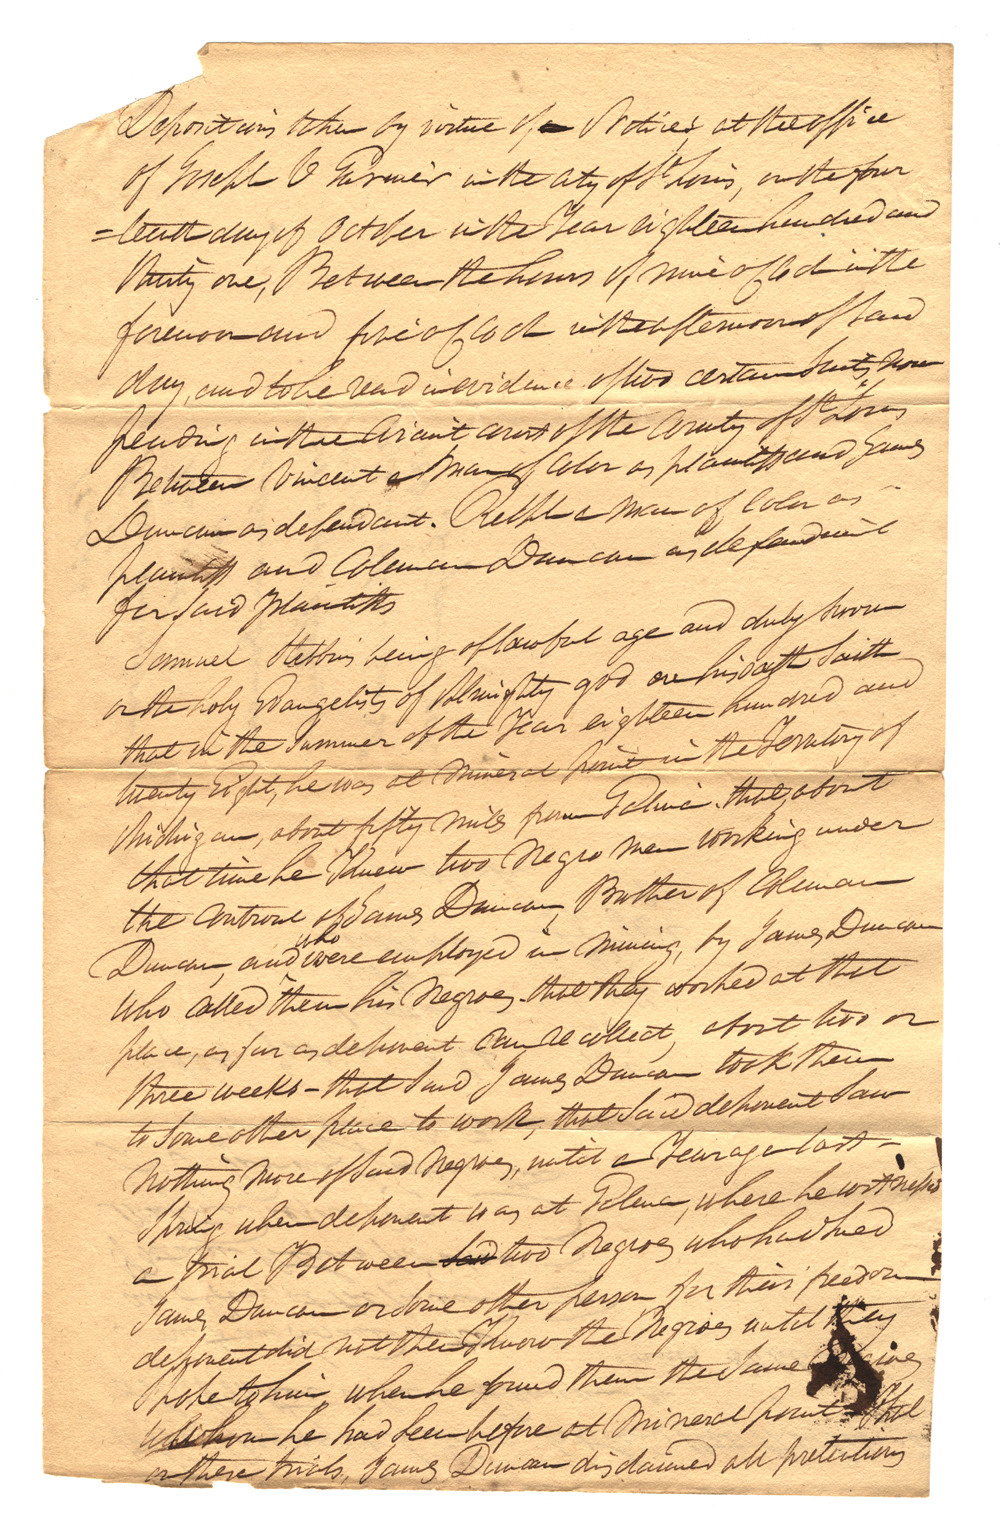 Depositions taken by virtue of Notices at the office
of Joseph V Garnier in the City of St Louis, on the four
=teenth day of October in the Year eighteen hundred and
thirty one, Between the hours of nine o Clock in the
forenoon and five o Clock in the afternoon of said
day, and to be read in evidence of two certain Suits, now
pending in the Circuit court of the County of St Louis
Between Vincent a Man of Color as plaintiff and James
Duncan as defendant. Ralph a Man of Color as
plaintiff and Coleman Duncan as defendant
for Said plaintiffs
Samuel being of lawful age and duly sworn
on the holy Evangelists of Almighty god on his oath Saith
that in the Summer of the Year eighteen hundred and
twenty Eight, he was at Mineral point in the Territory of
Michigan, about fifty miles from Galena. that about
that time he Knew two Negro men working under
the controul of James Duncan, Brother of Coleman
Duncan, and who were employed in Mining, by James Duncan
who called them his Negroes. that they worked at that
place, as far as deponent can recollect, about two or
three weeks – that Said James Duncan took them
to Some other place to work, that Said deponent Saw
Nothing More of Said Negroes, until a Year ago last
Spring when deponent was at Galena, where he witnessed
a trial Between said two Negroes who had sued
James Duncan or Some other person for their freedom
deponent did not then Know the Negroes until they
Spoke to him, when he found them the Same
whom he had seen before at Mineral point. that
on these trials, James Duncan disclaimed all pretentions